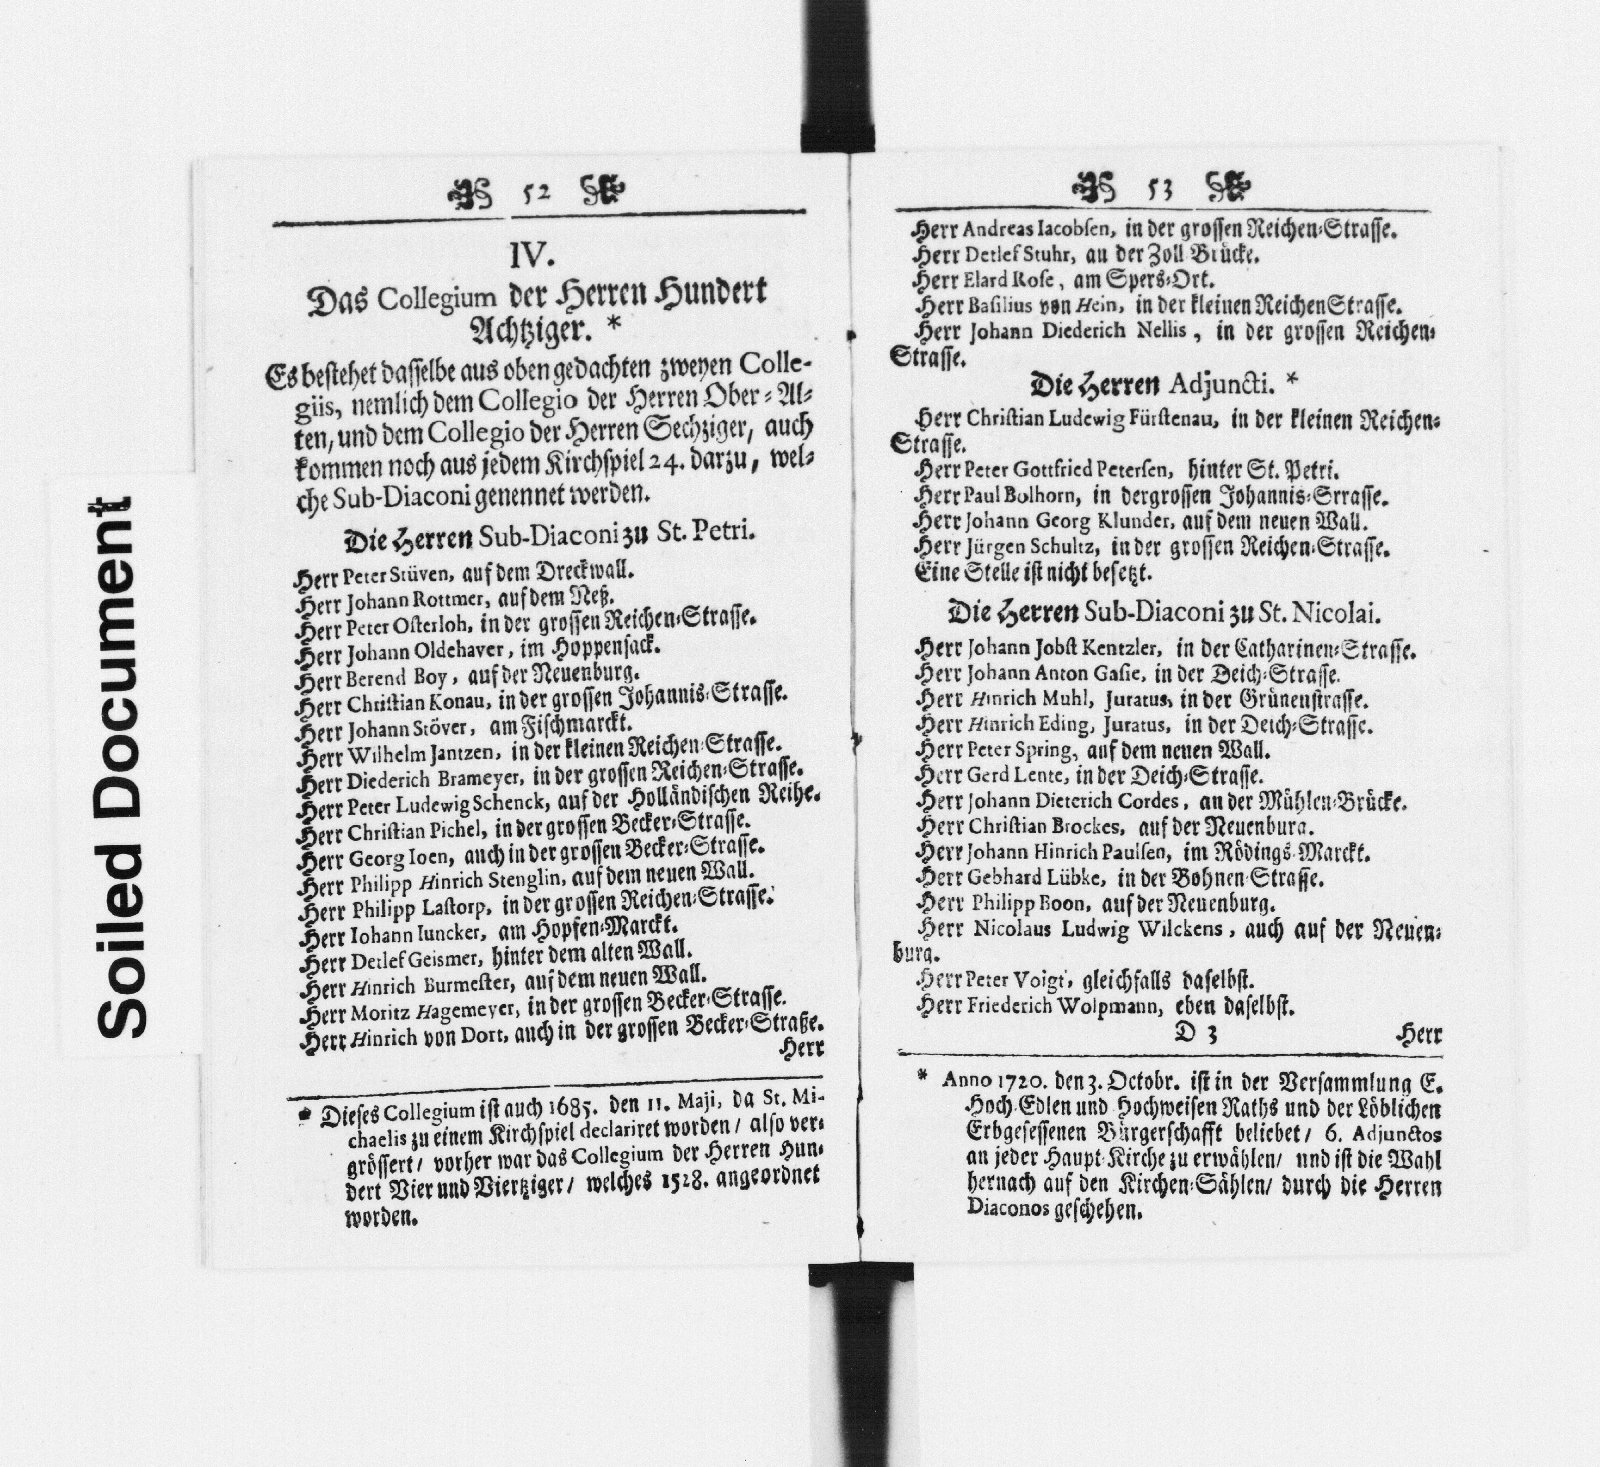 Soiled Document
52
IV.
Das Collegium der Herren Hundert
Achtziger. *
Es bestehet dasselbe aus oben gedachten zweyen Colle-
giis, nemlich dem Collegio der Herren Ober-Al-
ten, und dem Collegio der Herren Sechziger, auch
kommen noch aus jedem Kirchspiel 24. darzu, wel-
che Sub-Diaconi genennet werden.
Die Herren Sub-Diaconi zu St. Petri.
Herr Peter Stüven, auf dem Dreckwall.
Herr Johann Rottmer, auf dem Neß.
Herr Peter Osterloh, in der grossen Reichen-Strasse.
Herr Johann Oldehaver, im Hoppensack.
Herr Berend Boy, auf der Neuenburg.
Herr Christian Konau, in der grossen Johannis-Strasse.
Herr Johann Stöver, am Fischmarckt.
Herr Wilhelm Jantzen, in der kleinen Reichen-Strasse.
Herr Diederich Brameyer, in der grossen Reichen-Strasse.
Herr Peter Ludewig Schenck, auf der Holländischen Reihe.
Herr Christian Pichel, in der grossen Becker-Strasse.
Herr Georg Ioen, auch in der grossen Becker-Strasse.
Herr Philipp Hinrich Stenglin, auf dem neuen Wall.
Herr Philipp Lastorp, in der grossen Reichen-Strasse.
Herr Iohann Iuncker, am Hopfen-Marckt.
Herr Detlef Geismer, hinter dem alten Wall.
Herr Hinrich Burmester, auf dem neuen Wall.
Herr Moritz Hagemeyer, in der grossen Becker-Strasse.
Herr Hinrich von Dort, auch in der grossen Becker-Straße.
Herr
* Dieses Collegium ist auch 1685. den 11. Maji, da St. Mi-
chaelis zu einem Kirchspiel declariret worden/ also ver-
grössert/ vorher war das Collegium der Herren Hun-
dert Vier und Viertziger/ welches 1528. angeordnet
worden.
53
Herr Andreas Iacobsen, in der grossen Reichen-Strasse.
Herr Detlef Stuhr, an der Zoll Brücke.
Herr Elard Rose, am Spers-Ort.
Herr Basilius von Hein, in der kleinen Reichen Strasse.
Herr Johann Diederich Nellis, in der grossen Reichen-
Strasse.
Die Herren Adjuncti. *
Herr Christian Ludewig Fürstenau, in der kleinen Reichen-
Strasse.
Herr Peter Gottfried Petersen, hinter St. Petri.
Herr Paul Bolhorn, in dergrossen Johannis-Srrasse.
Herr Johann Georg Klunder, auf dem neuen Wall.
Herr Jürgen Schultz, in der grossen Reichen-Strasse.
Eine Stelle ist nicht besetzt.
Die Herren Sub-Diaconi zu St. Nicolai.
Herr Johann Jobst Kentzler, in der Catharinen-Strasse.
Herr Johann Anton Gasie, in der Deich-Strasse.
Herr Hinrich Muhl, Juratus, in der Grünenstrasse.
Herr Hinrich Eding, Juratus, in der Deich-Strasse.
Herr Peter Spring, auf dem neuen Wall.
Herr Gerd Lente, in der Deich-Strasse.
Herr Johann Dieterich Cordes, an der Mühlen-Brücke.
Herr Christian Brockes, auf der Neuenburg.
Herr Johann Hinrich Paulsen, im Rödings-Marckt.
Herr Gebhard Lübke, in der Bohnen-Strasse.
Herr Philipp Boon, auf der Neuenburg.
Herr Nicolaus Ludwig Wilckens, auch auf der Neuen-
burg.
Herr Peter Voigt, gleichfalls daselbst.
Herr Friederich Wolpmann, eben daselbst.
D 3 Herr
* Anno 1720. den 3. Octobr. ist in der Versammlung E.
Hoch-Edlen und Hochweisen Raths und der Löblichen
Erbgesessenen Bürgerschafft beliebet/ 6. Adjunctos
an jeder Haupt-Kirche zu erwählen/ und ist die Wahl
hernach auf den Kirchen-Sählen/ durch die Herren
Diaconos geschehen.